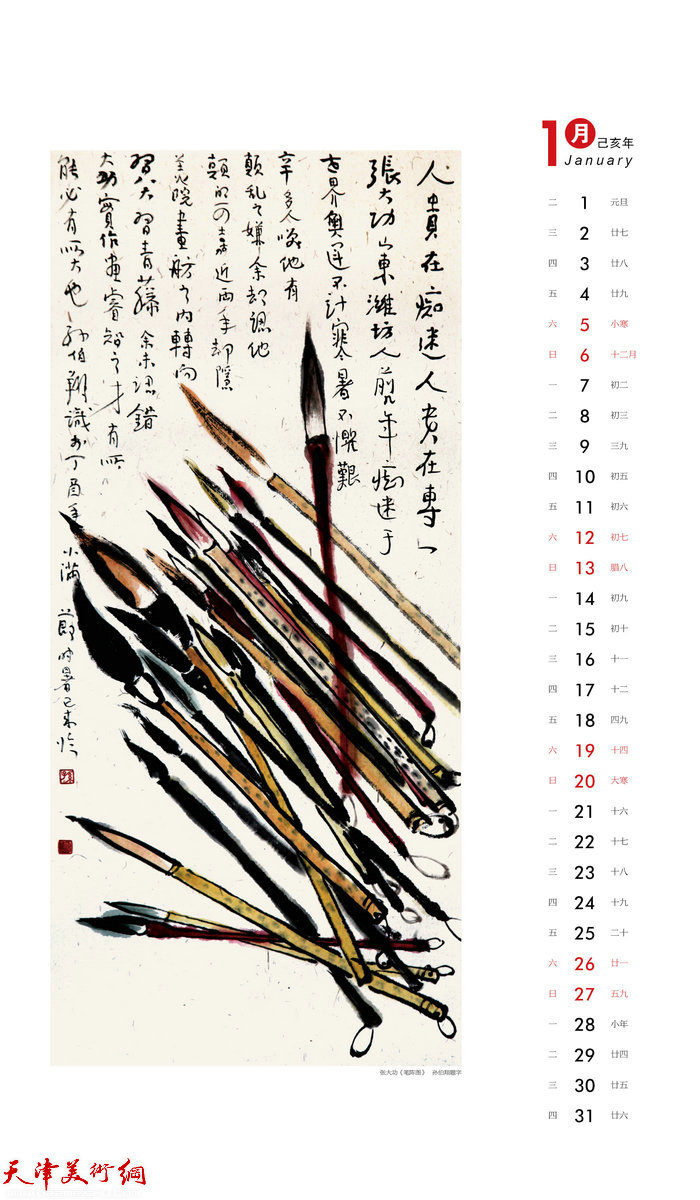 1月 己亥年
January
二 1 元旦
三 2 廿七
四 3 廿八
五 4 廿九
六 5 小寒
日 6 十二月
一 7 初二
二 8 初三
三 9 三九
四 10 初五
五 11 初六
六 12 初七
日 13 腊八
一 14 初九
二 15 初十
三 16 十一
四 17 十二
五 18 四九
六 19 十四
日 20 大寒
一 21 十六
二 22 十七
三 23 十八
四 24 十九
五 25 二十
六 26 廿一
日 27 五九
一 28 小年
二 29 廿四
三 30 廿五
四 31 廿六
人貴在痴迷人贵在專一
張大功山東潍坊人前年痴迷于
世界奥運不计寒暑不懼艱
辛多人嘆他有
顛乱之嫌余却認他
顛的可喜近两年却隱
美院畫舫之内轉向
習八大習青藤余未認錯
大功實作畫睿智之才有所
能必有所大也孙伯翔識于丁酉年小满
節时暑已来临
张大功《笔阵图》 孙伯翔题字
天津美術網